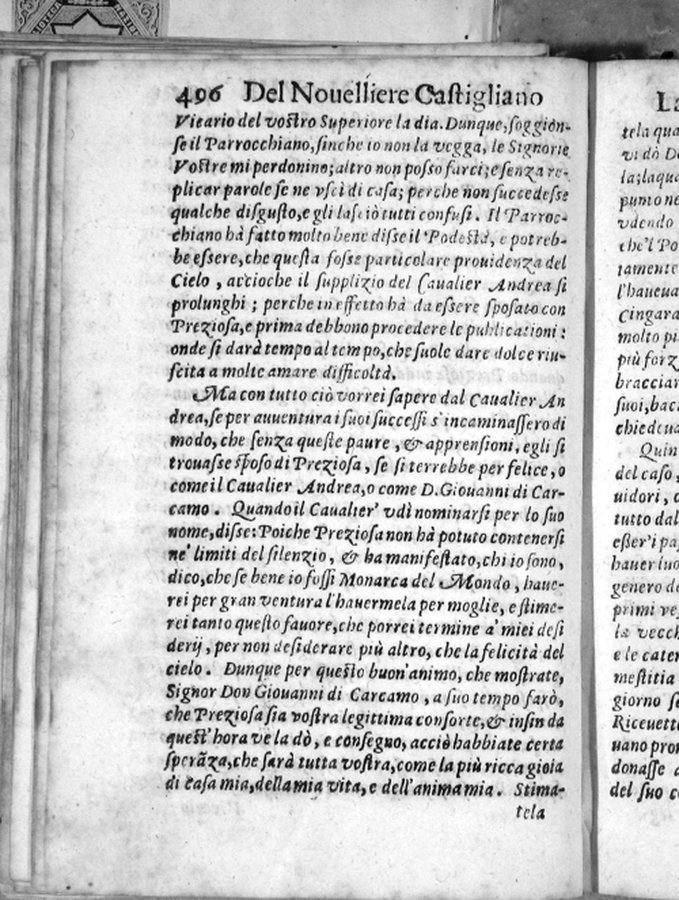 496 Del Nouelliere Castigliano
Vicario del vostro Superiore la dia. Dunque, soggion-
se il Parrocchiano, sinche io non la vegga, le Signorie
Vostre mi perdonino; altro non posso farci; e senza re-
plicar parole se ne vscì di casa; perche non succedesse
qualche disgusto, e gli lasciò tutti confusi. Il Parroc-
chiano hà fatto molto bene disse il Podestà, e potreb-
be essere, che questa fosse particolare prouidenza del
Cielo, accioche il supplizio del Caualier Andrea si
prolunghi; perche in effetto hà da essere sposato con
Preziosa, e prima debbono procedere le publicationi:
onde si darà tempo al tempo, che suole dare dolce riu-
scita a molte amare difficoltà.
Ma con tutto ciò vorrei sapere dal Caualier An
drea, se per auuentura i suoi successi s'incaminassero di
modo, che senza queste paure, & apprensioni, egli si
trouasse sposo di Preziosa, se si terrebbe per felice, o
come il Caualier Andrea, o come D. Giouanni di Car-
camo. Quando il Caualier' vdì nominarsi per lo suo
nome, disse: Poiche Preziosa non hà potuto contenersi
ne' limiti del silenzio, & ha manifestato, chi io sono,
dico, che se bene io fossi Monarca del Mondo, haue-
rei per gran ventura l'hauermela per moglie, e stime-
rei tanto questo fauore, che porrei termine a' miei desi
derij, per non desiderare più altro, che la felicità del
cielo. Dunque per questo buon'animo, che mostrate,
Signor Don Giouanni di Carcamo, a suo tempo farò,
che Preziosa sia vostra legittima consorte, & insin da
quest'hora ve la dò, e consegno, acciò habbiate certa
sperāza, che sarà tutta vostra, come la più ricca gioia
di casa mia, della mia vita, e dell'anima mia. Stima-
tela
La
tela qua
vi dò D
la; laqua
punto ne
vdendo
che'l Po
iamente
l'haueua
Cingara
molto pi
più forz
bracciar
suoi, baci
chiedeua
Quin
del caso,
uidori, c
tutto dal
esser'i pa
hauer luo
genero de
primi ves
la vecch
e le cater
mestitia
giorno se
Riceuett
uano pron
donasse a
del suo c